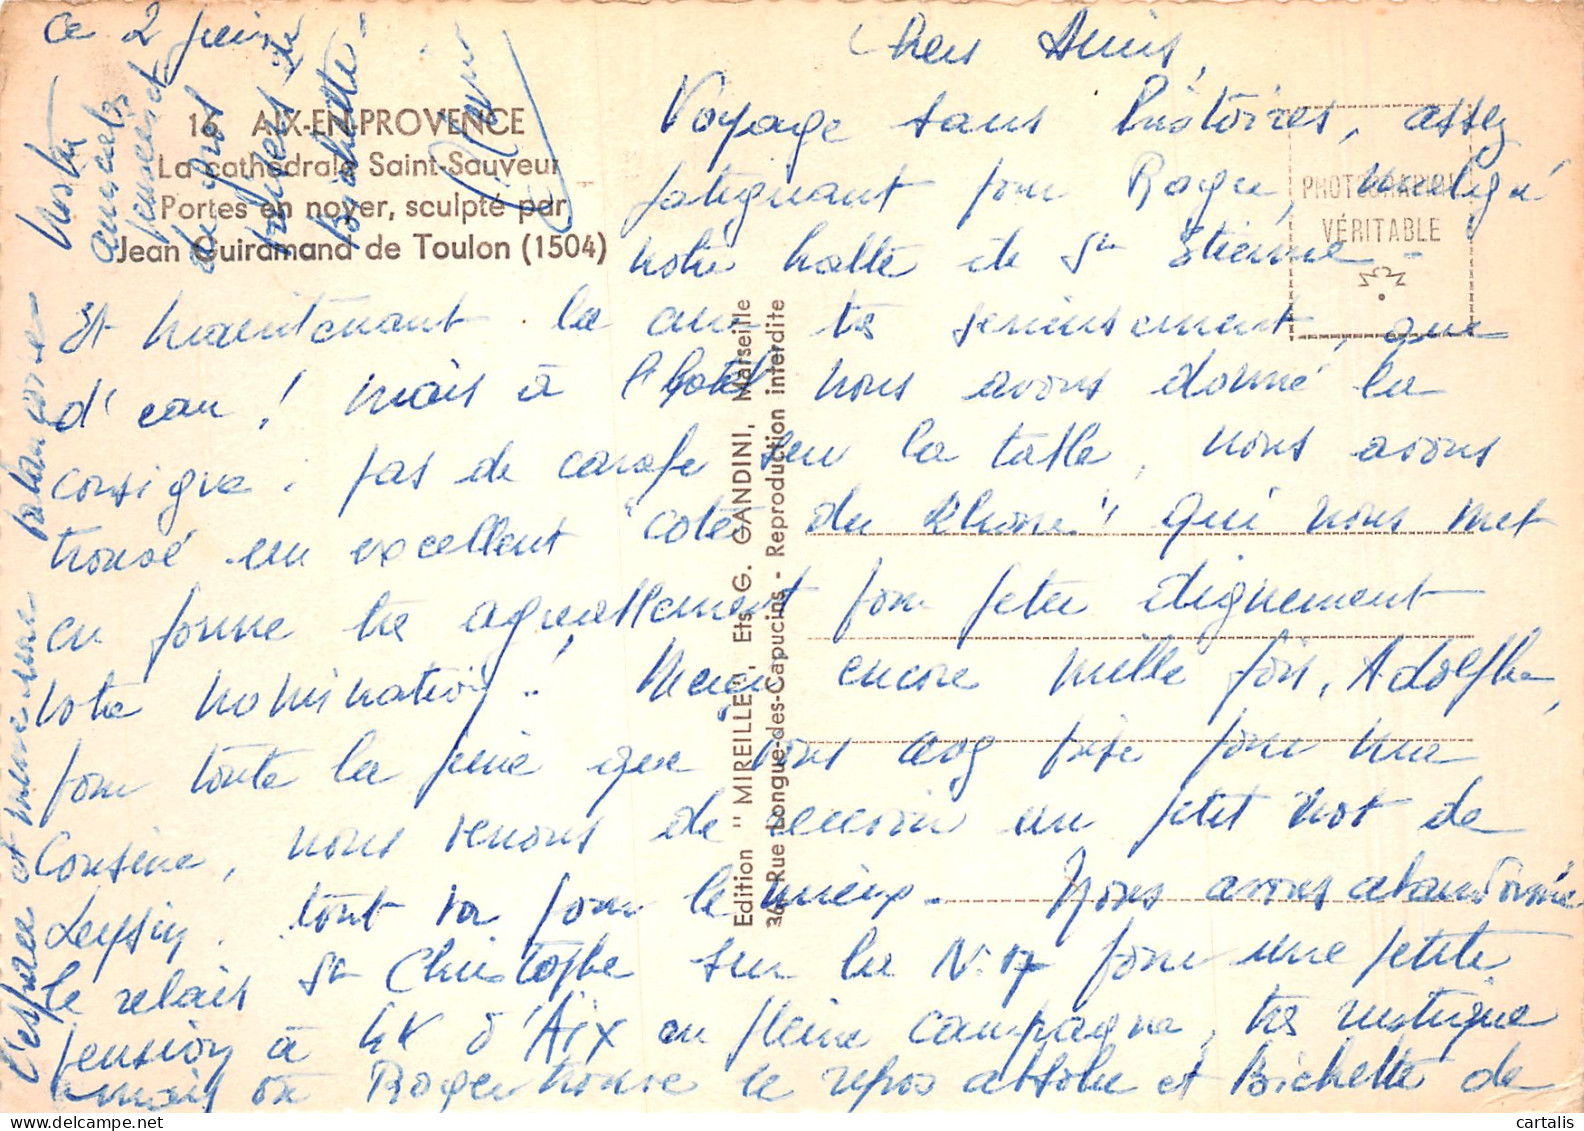 Ce 2 juin
Chers Amis,
16. AIX-EN-PROVENCE
La cathédrale Saint-Sauveur
Portes en noyer, sculpté par
Jean Guiramand de Toulon (1504)
PHOTOGRAPHIE
VÉRITABLE
Voyage sans histoires, assez
fatigant pour Roger, malgré
notre halte de St Etienne -
Et maintenant la cure très sérieusement, que
d'eau ! mais à l'hotel nous avons donné la
consigne : pas de carafe sur la table, nous avons
trouvé un excellent "cotes du Rhone" qui nous met
en forme très agréablement pour feter dignement
votre nomination ! Merci encore mille fois, Adolphe,
pour toute la peine que vous avez prise pour ma
Cousine, nous venons de recevoir un petit mot de
Leysin. tout va pour le mieux - Nous avons abandonné
le relais St Christophe sur la N.7 pour une petite
pension à 4K d'Aix en pleine campagne, très rustique
mais où Roger trouve le repos absolu et Bichette de
l'espace et même une balançoire
affectées
pensées et
de gros
baisers de
Bichette.
Edition "MIREILLE", Ets G. GANDINI, Marseille
36, Rue Longue-des-Capucins - Reproduction interdite
cartalis